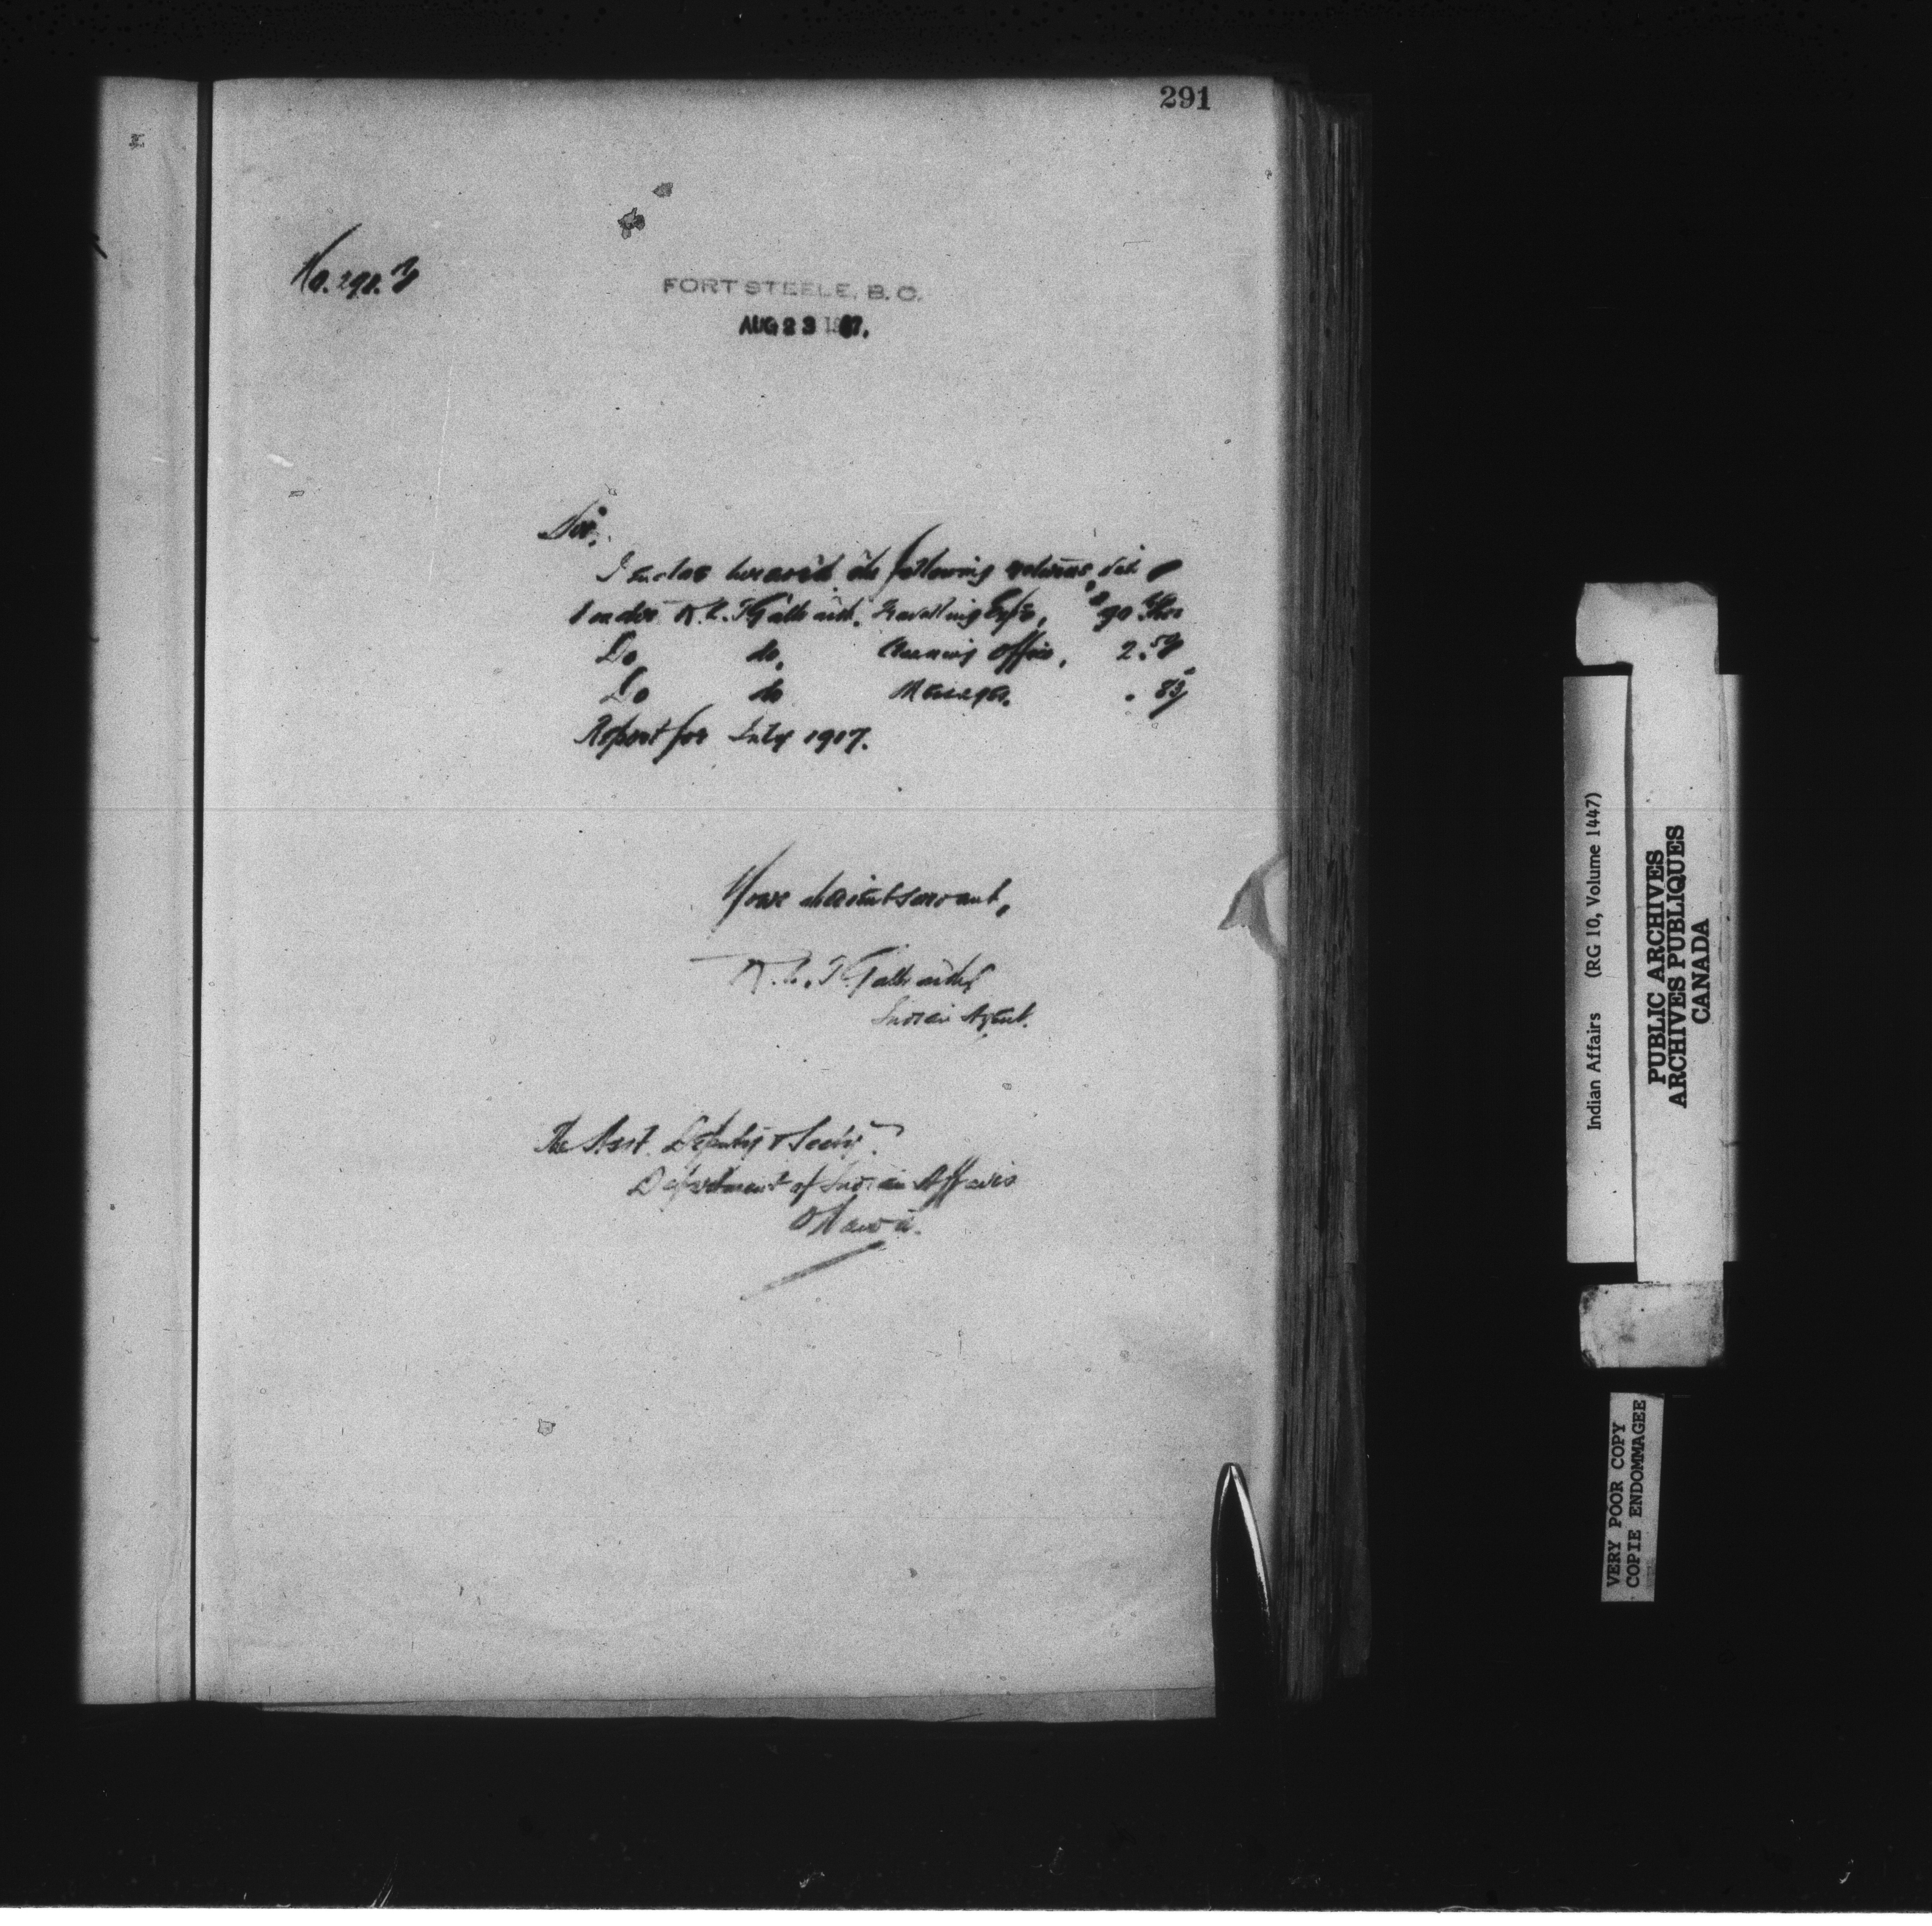 291
No. 290.
FORT STEELE, B.C.
AUG 23 1907.
Sir,
I enclose herewith the following returns, viz
R. L. T. Galbraith, Travelling Exps,
Do do, Cleaning Office, 2.50
Do do Messages.
Report for July 1907.
Your obedient servant,
R. L. T. Galbraith,
Indian Agent.
The Asst. Deputy & Secy.
Department of Indian Affairs
Ottawa.
Indian Affairs (RG 10, Volume 1447)
PUBLIC ARCHIVES
ARCHIVES PUBLIQUES
CANADA
VERY POOR COPY
COPIE ENDOMMAGEE